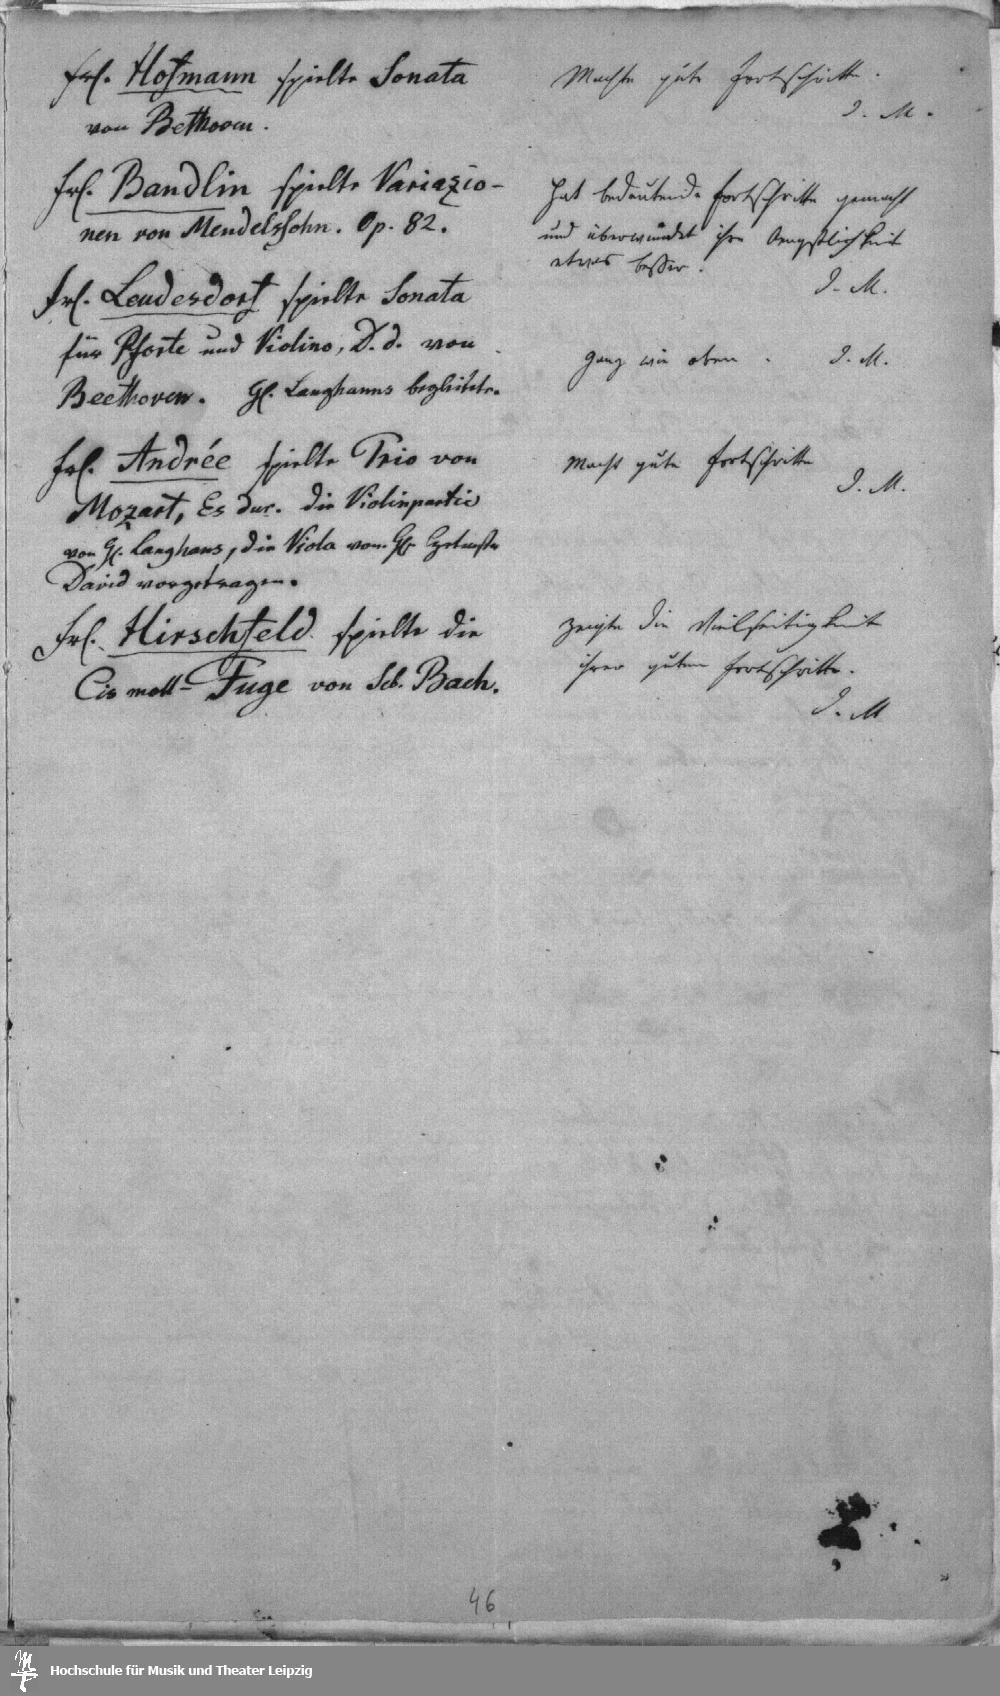 Frl. Hofmann spielte Sonata
von Bethoven.
Machte gute Fortschritte.
I. M.
Frl. Bandlin spielte Variazio-
nen von Mendelssohn. Op. 82.
Hat bedeutende Fortschritte gemacht
und überwindet ihre Aengstlichkeit
etwas besser.
I. M.
Frl. Leudesdorf spielte Sonata
für Pforte und Violino, D. d. von
Beethoven. H. Langhanns begleitete.
Ganz wie oben. I. M.
Frl. Andrée spielte Trio von
Mozart, Es dur. die Violinpartie
von H. Langhans, die Viola vom H.
David vorgetragen.
Macht gute Fortschritte
I. M.
Frl. Hirschfeld spielte die
Cis moll-Fuge von Seb. Bach.
zeigte die Vielseitigkeit
ihrer guten Fortschritte.
I. M
46
Hochschule für Musik und Theater Leipzig